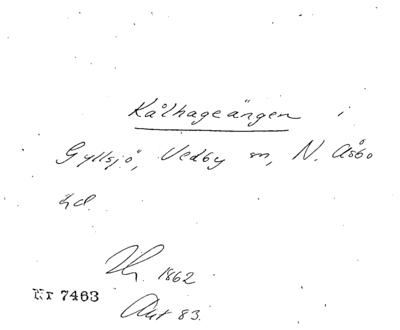 Kålhageängen i
Gyllsjö, Vedby sn, N. Åsbo
hd.
1862
Nr 7463
Akt 83.